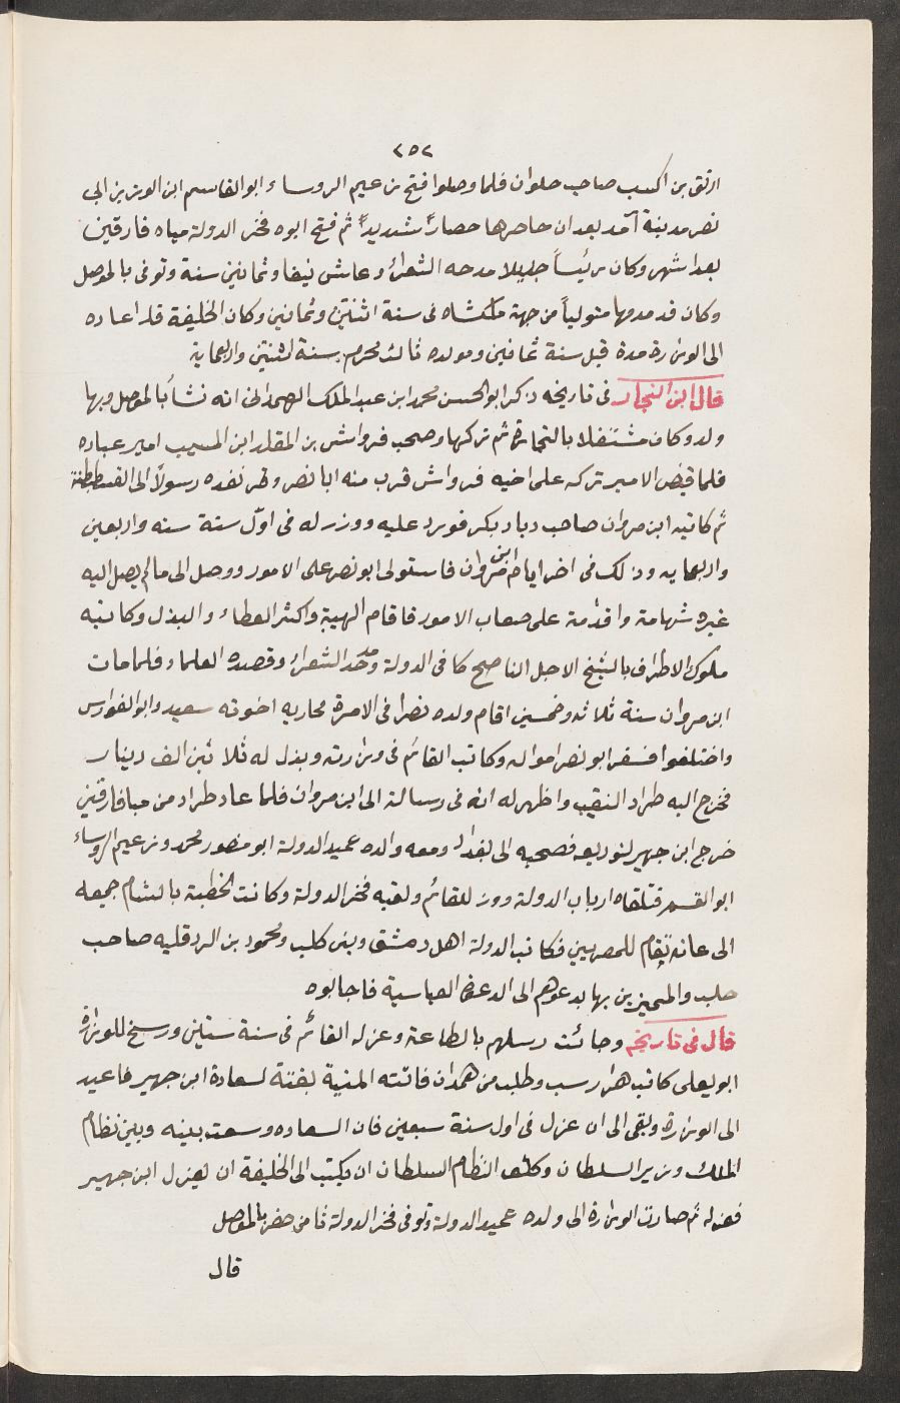 ٢٥٢
ارتق بن اكسب صاحب حلوان فلما وصلوا فتح زعيم الروساء ابو القاسم ابن الوزير ابى
نصر مدينة آمد بعد ان حاصرها حصاراً شديداً ثم فتح ابوه فخر الدولة مياه فارقين
بعد اشهر وكان رئيساً جليلا مدحه الشعراء وعاش نيفا وثمانين سنة وتوفى بالموصل
وكان قد قدمها متولياً من جهة ملكشاه فى سنة اثنتين وثمانين وكان الخليفة قد اعاده
الى الوزارة مدة قبل سنة ثمانين ومولده ثالث محرم سنة اثنتين واربعماية
قال ابن النجار فى تاريخه ذكر ابو الحسن محمد ابن عبد الملك الهمدانى انه نشأ بالموصل وبها
ولد وكان مشتغلا بالتجارة ثم تركها وصحب قرواش بن المقلد ابن المسيب امير عباده
فلما قبض الامير تركه على اخيه قرواش قرب منه ابا نصر ونفذه رسولاً الى القسطنطنة
ثم كاتبه ابن مروان صاحب ديار بكر فورد عليه ووزر له فى اوّل سنة سته واربعين
واربعمايه وذلك فى اخر ايام ابن مروان فاستولى ابو نصر على الامور ووصل الى ما لم يصل اليه
غيره شهامة واقدامة على صعاب الامور فاقام الهيبة واكثر العطاء والبذل وكاتبه
ملوك الاطراف بالشيخ الاجل الناصح كافى الدولة ومدحه الشعراء وقصده العلماء فلما مات
ابن مروان سنة ثلاثه وخمسين اقام ولده نصرا فى الامرة محاربه اخوته سعيد وابو الفوارس
واختلفوا فسفر ابو نصر امواله وكاتب القائم فى وزارته وبذل له ثلاثين الف دينار
فخرج اليه طراد النقيب واظهر له انه فى رسالة الى ابن مروان فلما عاد طراد من ميافارقين
خرج ابن جهير لتوديعه فصحبه الى بغداد ومعه والده عميد الدولة ابو منصور محمد وزعيم الروساء
ابو القسم فتلقاه ارباب الدولة ووزر للقائم ولقبه فخر الدولة وكانت الخطبة بالشام جميعه
الى عانه تقام للمصريين فكاتب الدولة اهل دمشق وبنى كلب ومحمود بن الردقليه صاحب
حلب والمميزين بها يدعوهم الى الدعوة العباسية فاجابوه
قال فى تاريخه وجائت رسلهم بالطاعة وعزله القائم فى سنة ستين ورسخ للوزارة
ابو يعلى كاتب هزارسب وطلب من همدان فاتته المنية بغتة لسعادة ابن جهير فاعيد
الى الوزارة وبقى الى ان عزل فى اول سنة سبعين فان السعاده وسعت بينه وبين نظام
الملك وزير السلطان وكلف النظام السلطان ان يكتب الى الخليفة ان يعزل ابن جهير
فعزله ثم صارت الوزارة الى ولده عميد الدولة وتوفى فخر الدولة ثامن صفر بالموصل
قال